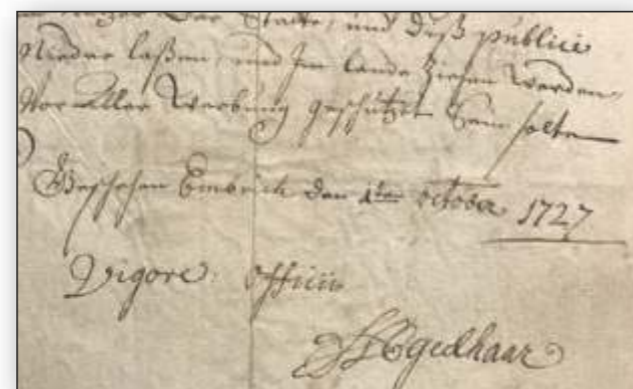 der Statt, und deß publici
Nieder laßen, und Im lande Ziehen werden,
Vor aller Werbung geschützet Sein solten
Geschehen Embrich den 1ten october 1727
Vigore officii